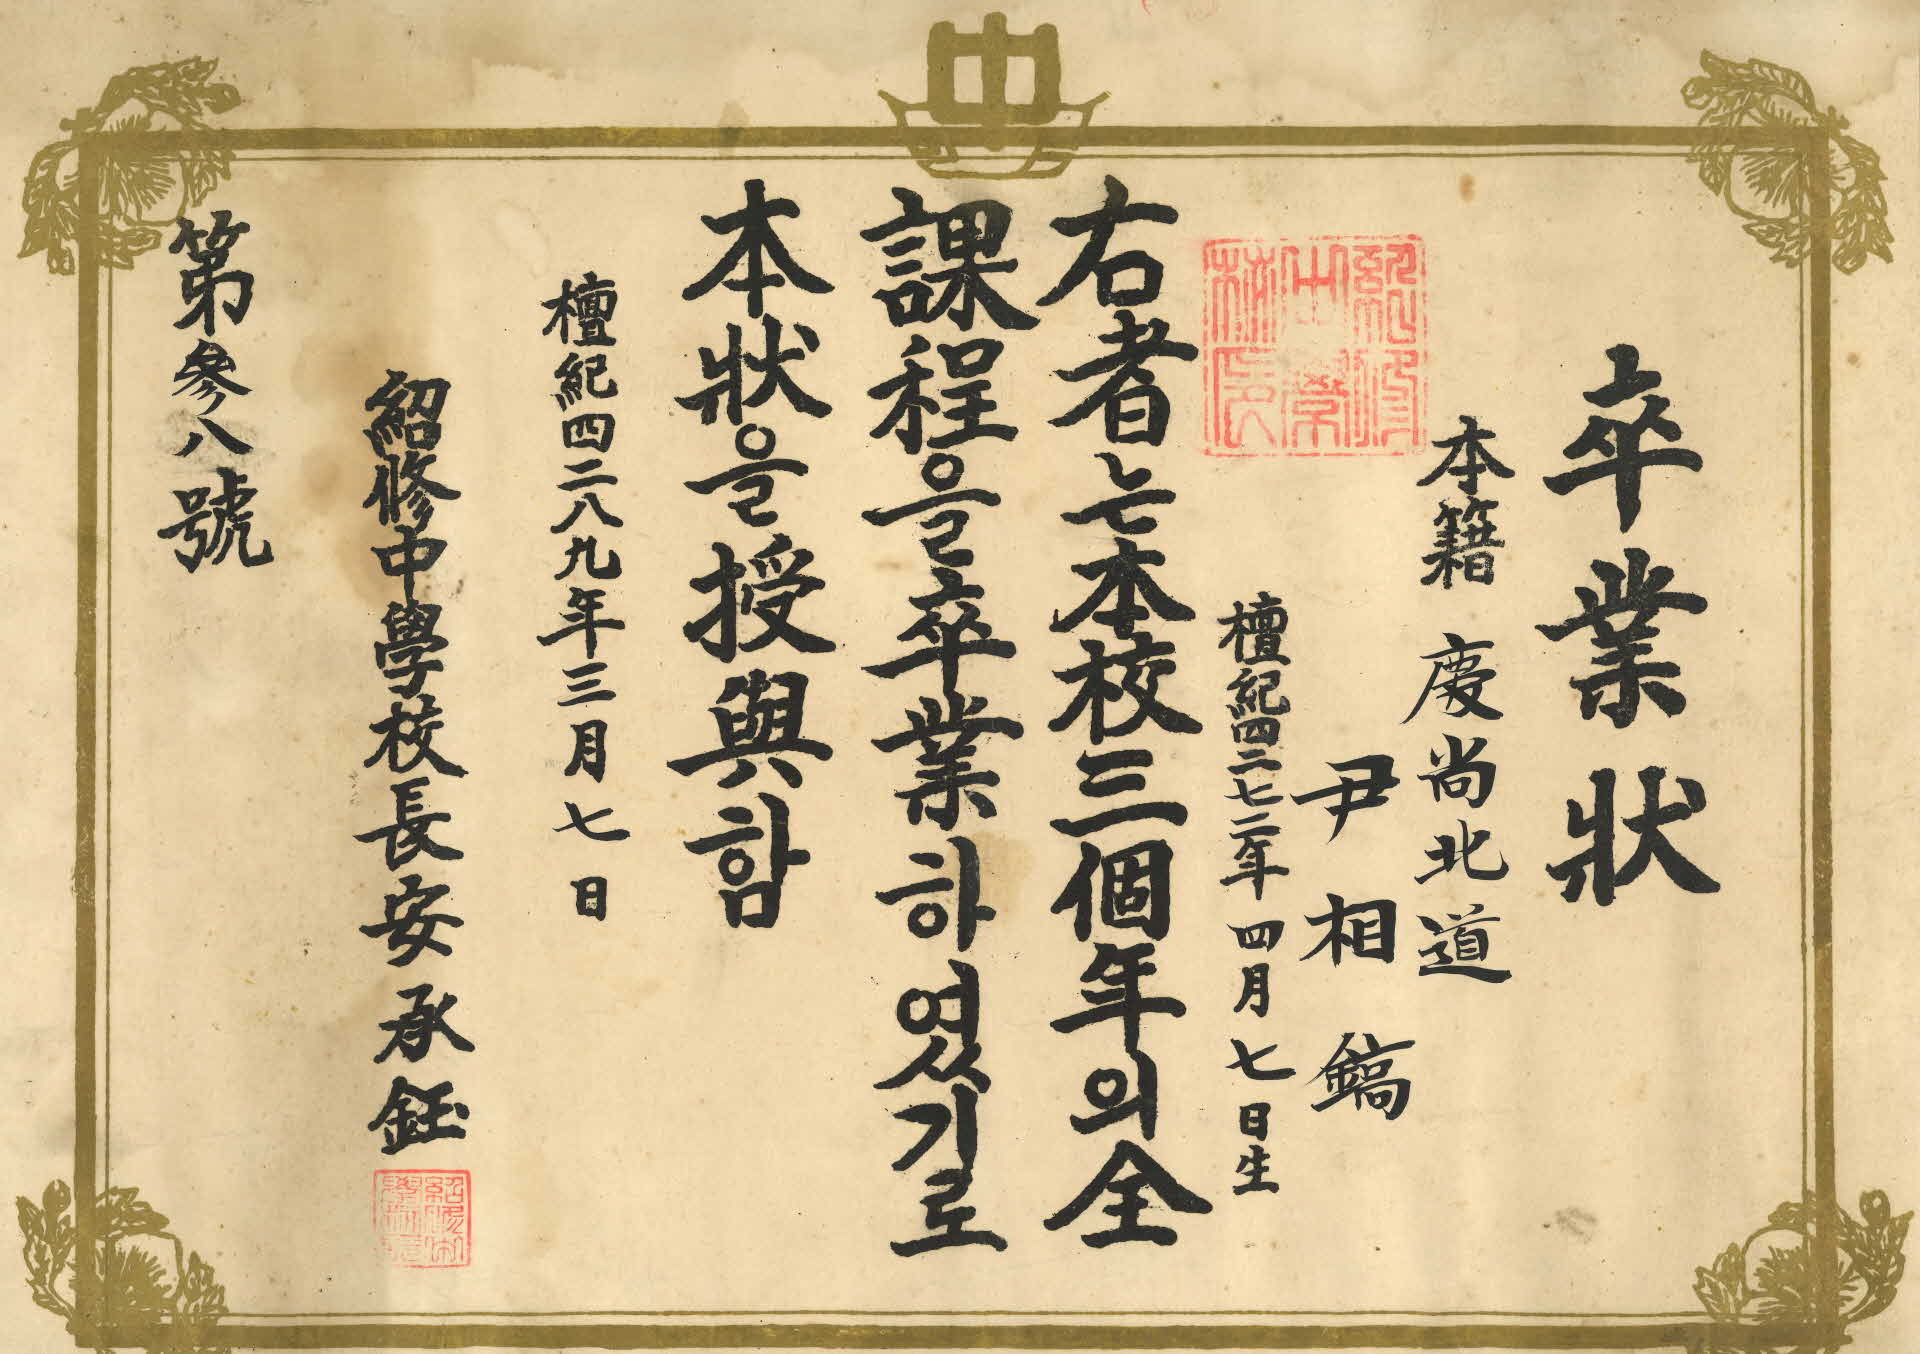 卒業狀
本籍 慶尚北道
尹相鎬
檀紀四二七二年四月七日生
右者는本校三個年의全
課程을卒業하였기로
本狀을授與함
檀紀四二八九年三月七日
紹修中學校長安承鈺
第參八號
中